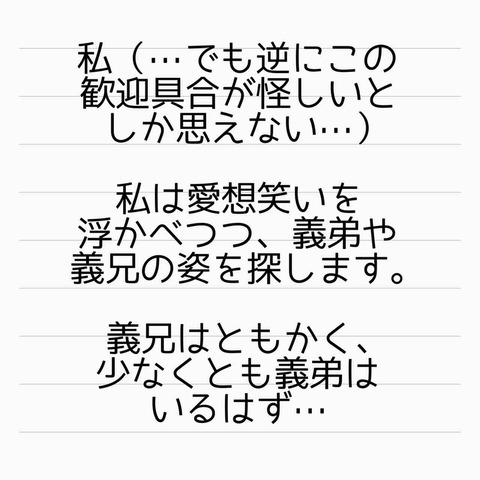 私（…でも逆にこの
歓迎具合が怪しいと
しか思えない…）
私は愛想笑いを
浮かべつつ、義弟や
義兄の姿を探します。
義兄はともかく、
少なくとも義弟は
いるはず…